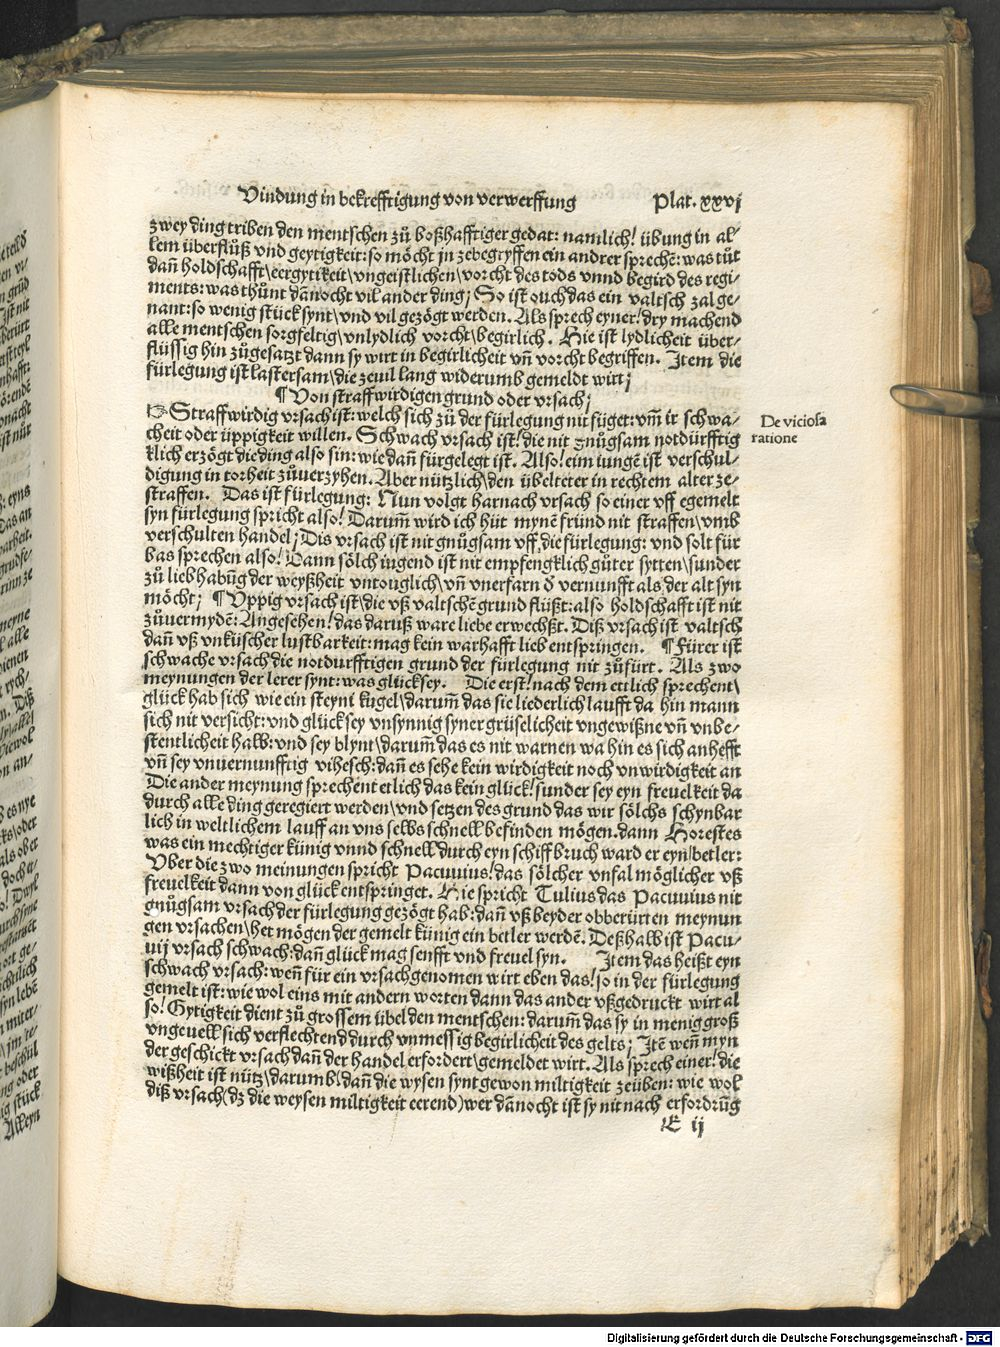 Vindung in bekrefftigung von verwerffung Plat. xxvj
zwey ding triben den mentschen zů boßhafftiger gedat: namlich/ übung in al-
lem überflůß vnd geytigkeit: so möcht jn zebegryffen ein andrer sprechē: was tůt
dañ holdschafft\eergytikeit\vngeistlichen\vorcht des tods vnnd begird des regi-
ments: was thůnt dānocht vil ander ding; So ist ouch das ein valtsch zal ge-
nant: so wenig stück synt\vnd vil gezögt werden. Als sprech eyner/ dry machend
alle mentschen sorgfeltig\vnlydlich vorcht\begirlich. Hie ist lydlicheit über-
flüssig hin zůgesatzt dann sy wirt in begirlicheit vñ vorcht begriffen. Item die
fürlegung ist lastersam\die zeuil lang widerumb gemeldt wirt;
¶ Von straffwirdigen grund oder vrsach;
Straffwirdig vrsach ist: welch sich zů der fürlegung nit füget: vm̄ ir schwa-
cheit oder üppigkeit willen. Schwach vrsach ist/ die nit gnůgsam notdürfftig
klich erzögt die ding also sin: wie dañ fürgelegt ist. Also/ eim iungē ist verschul-
digung in torheit zůuerzyhen. Aber nützlich\den übelteter in rechtem alter ze-
straffen. Das ist fürlegung: Nun volgt harnach vrsach so einer vff egemelt
syn fürlegung spricht also/ Darum̄ wird ich hüt mynē fründ nit straffen\vmb
verschulten handel; Dis vrsach ist nit gnůgsam vff die fürlegung: vnd solt für
bas sprechen also/ Dann sölch iugend ist nit empfengklich gůter sytten\sunder
zů lieb habūg der weyßheit vntouglich\vñ vnerfarn d̄ vernunfft als der alt syn
möcht; ¶ Vppig vrsach ist\die vß valtschē grund flüßt: also holdschafft ist nit
zůuermydē: Angesehen/ das daruß ware liebe erwechßt. Diß vrsach ist valtsch
dañ vß vnküscher lustbarkeit: mag kein warhafft lieb entspringen. ¶ Fürer ist
schwache vrsach die notdurfftigen grund der fürlegung nit zůfürt. Als zwo
meynungen der lerer synt: was glück sey. Die erst/ nach dem ettlich sprechent\
glück hab sich wie ein steyni kugel\darum̄ das sie liederlich laufft da hin mann
sich nit versicht: vnd glück sey vnsynnig syner grüselicheit vngewißne vñ vnbe-
stentlicheit halb: vnd sey blynt\darum̄ das es nit warnen wa hin es sich anhefft
vñ sey vnuernunfftig vihesch: dañ es sehe kein wirdigkeit noch vnwirdigkeit an
Die ander meynung sprechent etlich das kein glück/ sunder sey eyn freuelkeit da
durch alle ding geregiert werden\vnd setzen des grund das wir sölchs schynbar
lich in weltlichem lauff an vns selbs schnell befinden mögen. dann Horestes
was ein mechtiger künig vnnd schnell durch eyn schiffbruch ward er eyn betler:
Vber die zwo meinungen spricht Pacuuius/ das sölcher vnfal möglicher vß
freuelkeit dann von glück entspringet. Hie spricht Tulius das Pacuuius nit
gnůgsam vrsach der fürlegung gezögt hab: dañ vß beyder obberürten meynun
gen vrsachen\het mögen der gemelt künig ein betler werdē. Deßhalb ist Pacu-
uij vrsach schwach: dañ glück mag senfft vnd freuel syn. Item das heißt eyn
schwach vrsach: weñ für ein vrsach genomen wirt eben das/ so in der fürlegung
gemelt ist: wie wol eins mit andern worten dann das ander vßgedruckt wirt al
so/ Gytigkeit dient zů grossem übel den mentschen: darum̄ das sy in menig groß
vngeuell sich verflechtend durch vnmessig begirlicheit des gelts; Itē weñ myn
der geschickt vrsach dañ der handel erfordert\gemeldet wirt. Als sprech einer/ die
wißheit ist nütz\darumb (dañ die wysen synt gewon miltigkeit zeüben: wie wol
diß vrsach (dz die weysen miltigkeit eerend) wer dānocht ist sy nit nach erfordrūg
E ij
De viciosa
ratione
Digitalisierung gefördert durch die Deutsche Forschungsgemeinschaft - DFG